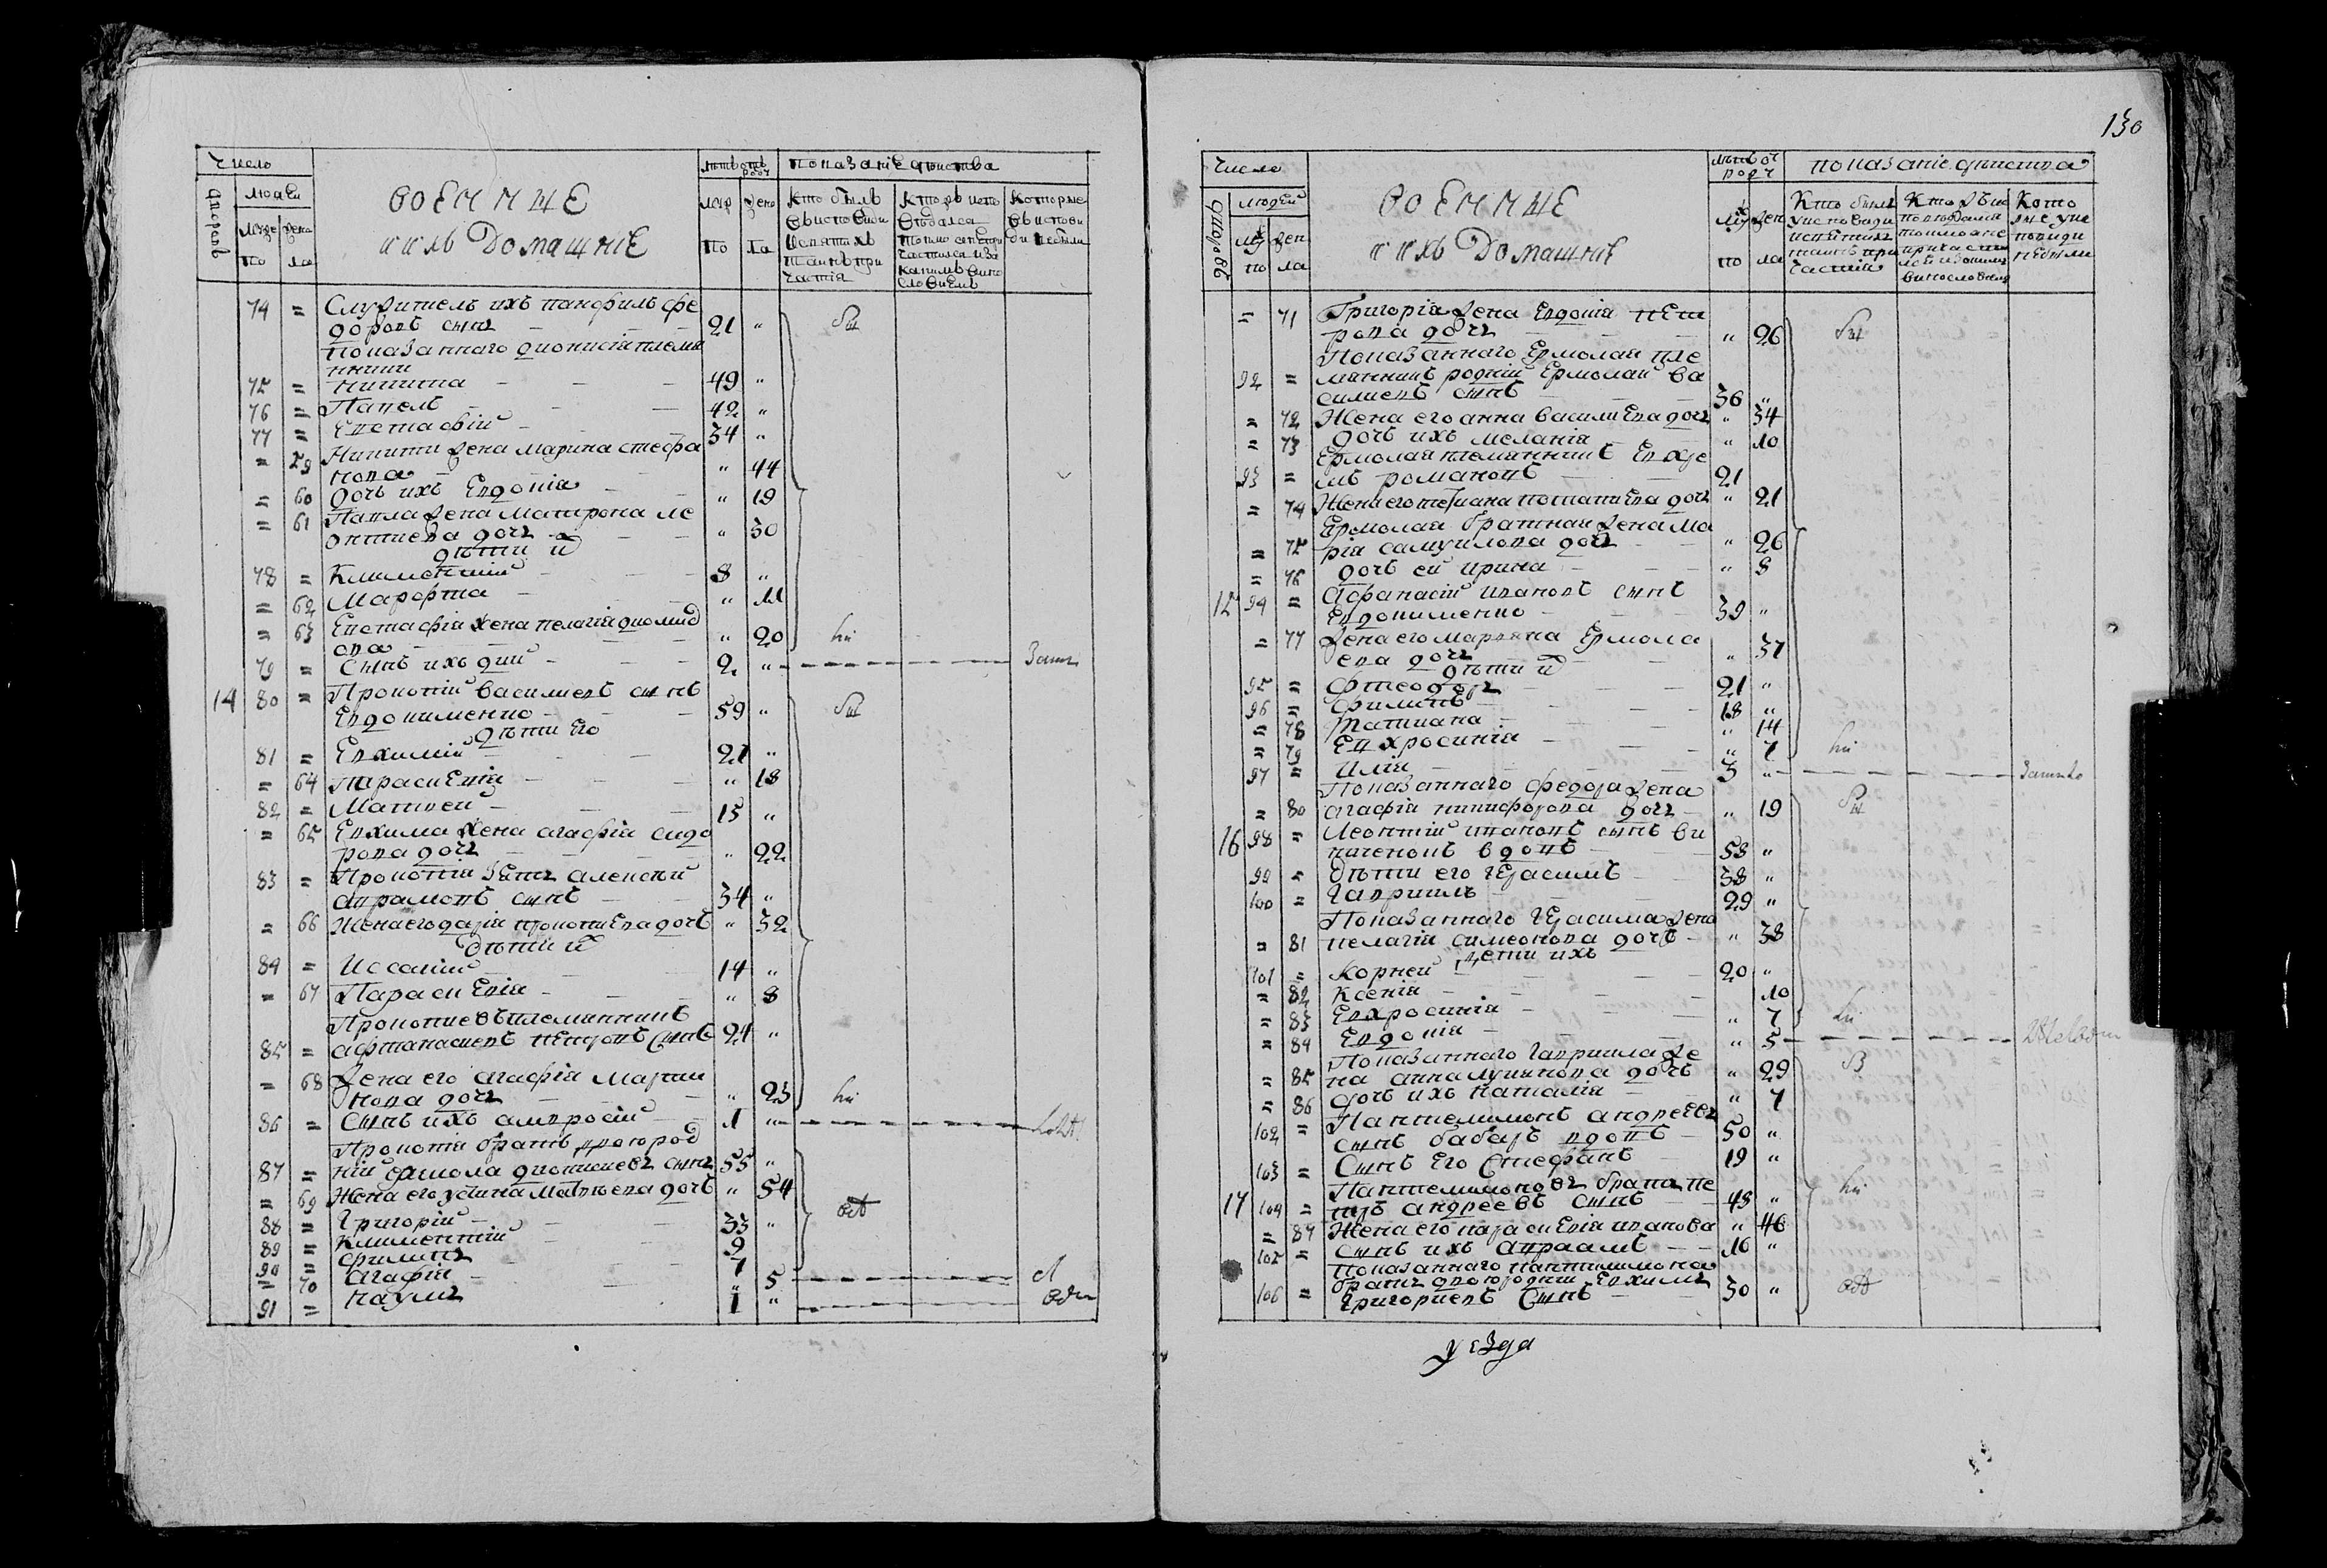 130
Число
лѣтъ отъ рожд
показаніе дѣйства
дворовъ
людей
военныЕ
и ихъ ДомашніЕ
муже
жена
по
ла
муж
жено
по
ла
Кто былъ
въ исповеди
и святыхъ
таинъ при
частія
которые
въ испове
ди не были
74 = Служитель ихъ панфилъ фе
доровъ сынъ 21 "
показаннаго дионисія племя
нники
75 = никита 49 "
76 = Павелъ 42 "
77 = Евстафій 34 "
= 59 Никиты жена марина стефа
нова " 44
= 60 дочь ихъ Евдокія " 19
= 61 Павла жена матрона ле
онтиева дочь " 30
дѣти их
78 = Климентий 8 "
= 62 Марфа " 11
= 63 Евстафія жена пелагія диомид
ова " 20
79 = Сынъ ихъ дий 2 "
14 80 = Прокопій василиевъ сынъ
Евдокименко 59 "
дѣти его
81 = Евхимій 21 "
= 64 Параскевія " 18
82 = Матвей 15 "
= 65 Евхима жена агафія сидо
рова дочь " 22
83 = Прокопія зять алексий
авраамовъ сынъ 34 "
= 66 Жена его дарія прокопиева дочь " 32
дѣти их
84 = Иссакий 14 "
= 67 Параскевія " 8
Прокопиевъ племянникъ
85 = афанасиевъ петровъ сынъ 24 "
= 68 жена его агафія марты
нова дочь " 23
86 = Сынъ ихъ амвросій 1 "
Прокопія братъ двоюрод
87 = ній Ермола дионисиевъ сынъ 55 "
= 69 Жена его устина матвѣева дочь " 54
88 = Григорій 33 "
89 = Климентий 9
90 = филипъ 7
= 70 агафія " 5
91 = наумъ 1 "
Число
лѣтъ от рожд
показаніе дѣйства
дворовъ
людей
военныЕ
и ихъ ДомашніЕ
муж
жен
по
ла
по
ла
Кто былъ
у исповеди
и святыхъ
таинъ при
частій
Кото
рые у ис
поведи
не были
= 71 Григорія жена Евдокія пет
рова дочь " 26
Показаннаго Ермолая пле
92 = мянникъ родній Ермолай ва
силиевъ сынъ 36 "
= 72 Жена его анна василиева дочь " 34
= 73 дочь ихъ меланія " 10
Ермолая племянникъ Евхи
93 = мъ романовъ 21
= 74 Жена его татиана потапиева дочь " 21
Ермолая братняя жена ма
= 75 рія самуилова дочь " 26
= 76 дочь ей ирина " 8
15 94 = Афанасій ивановъ сынъ
Евдокименко 39 "
= 77 жена его мариана Ермола
ева дочь " 37
дѣти их
95 = фтеодоръ 21 "
96 = филипъ 18 "
= 78 Татиана " 14
= 79 Евхросинія " 7
97 = Илія 3 "
Показаннаго федора жена
= 80 агафія никифорова дочь " 19
16 98 = Леонтій ивановъ сынъ ви
ниченокъ вдовъ 58 "
99 = дѣти его герасимъ 38 "
100 = Гавриилъ 29 "
Показаннаго герасима жена
= 81 пелагія симеонова дочь " 38
дети ихъ
101 = Корней 20 "
= 82 Ксенія 10
= 83 Евхросинія " 7
= 84 Евдокія " 5
Показаннаго гавриила же
= 85 на анна лукянова дочь " 29
= 86 дочь ихъ наталія " 7
102 = Пантелимонъ андреевъ
сынъ бабаръ вдовъ 50 "
103 = Сынъ его Стефанъ 19 "
Пантелимоновъ братъ пе
17 104 = тръ андреевъ сынъ 48 "
= 87 Жена его параскевія иванова " 46
105 = сынъ ихъ авраамъ 16 "
Показаннаго пантилимона
братъ двоюродній Евхимъ
106 = Григориевъ Сынъ 30 "
уезда